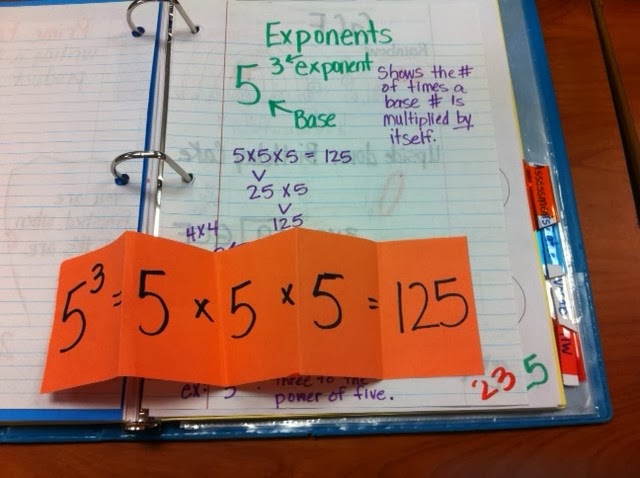 Exponents
5 3 ← exponent
Base
Shows the #
of times a
base # is
multiplied by
itself.
5x5x5 = 125
25 x5
125
4x4
5³ = 5 x 5 x 5 = 125
ex:
three to the
power of five.
23 5
Assessments
HW